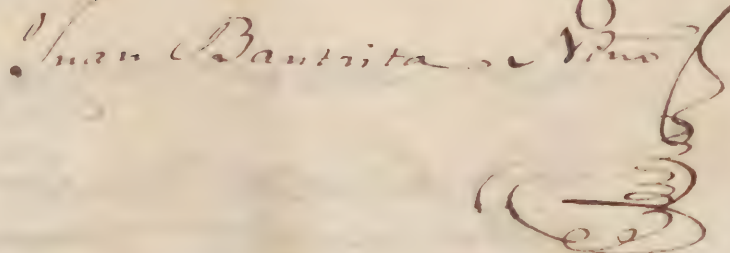 Juan Bautista de Pino